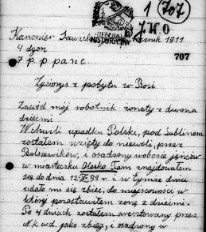 1 (707
7 H O
Kanonier Sawicki rocznik 1911
4 dyon
7 p. p panc.
707
Życiorys z pobytu w Rosji
Zawód mój robotnik żonaty z dwoma
dziećmi.
W chwili upadku Polski, pod Lublinem
zostałem wzięty do niewoli, przez
Bolszewików, i osadzony w obozie jeńców
w miasteczku Olesko. Tam znajdowałem
się do dnia 12 39 r. i w tymże dniu
udało mi się zbiec, do miejscowości w
której pozostawiłem żonę z dziećmi.
Po 4 dniach zostałem aresztowany przez
N.K.W.D. jako zbieg, i osadzony w